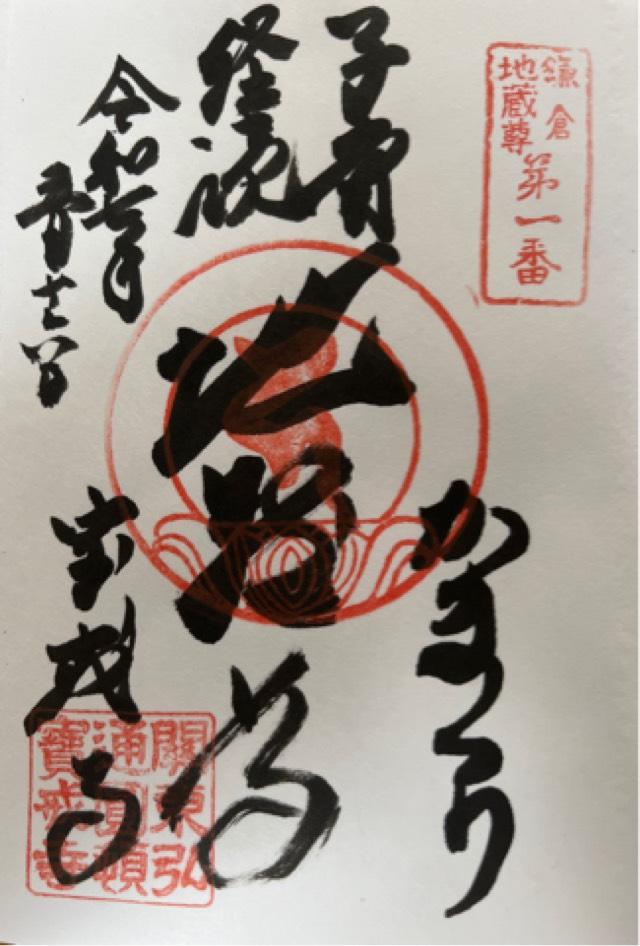 鎌倉
地蔵尊
第一番
かまくら
子育
経読
地蔵尊
令和七年
宝戒寺
關東弘
通圓頓
寶戒寺